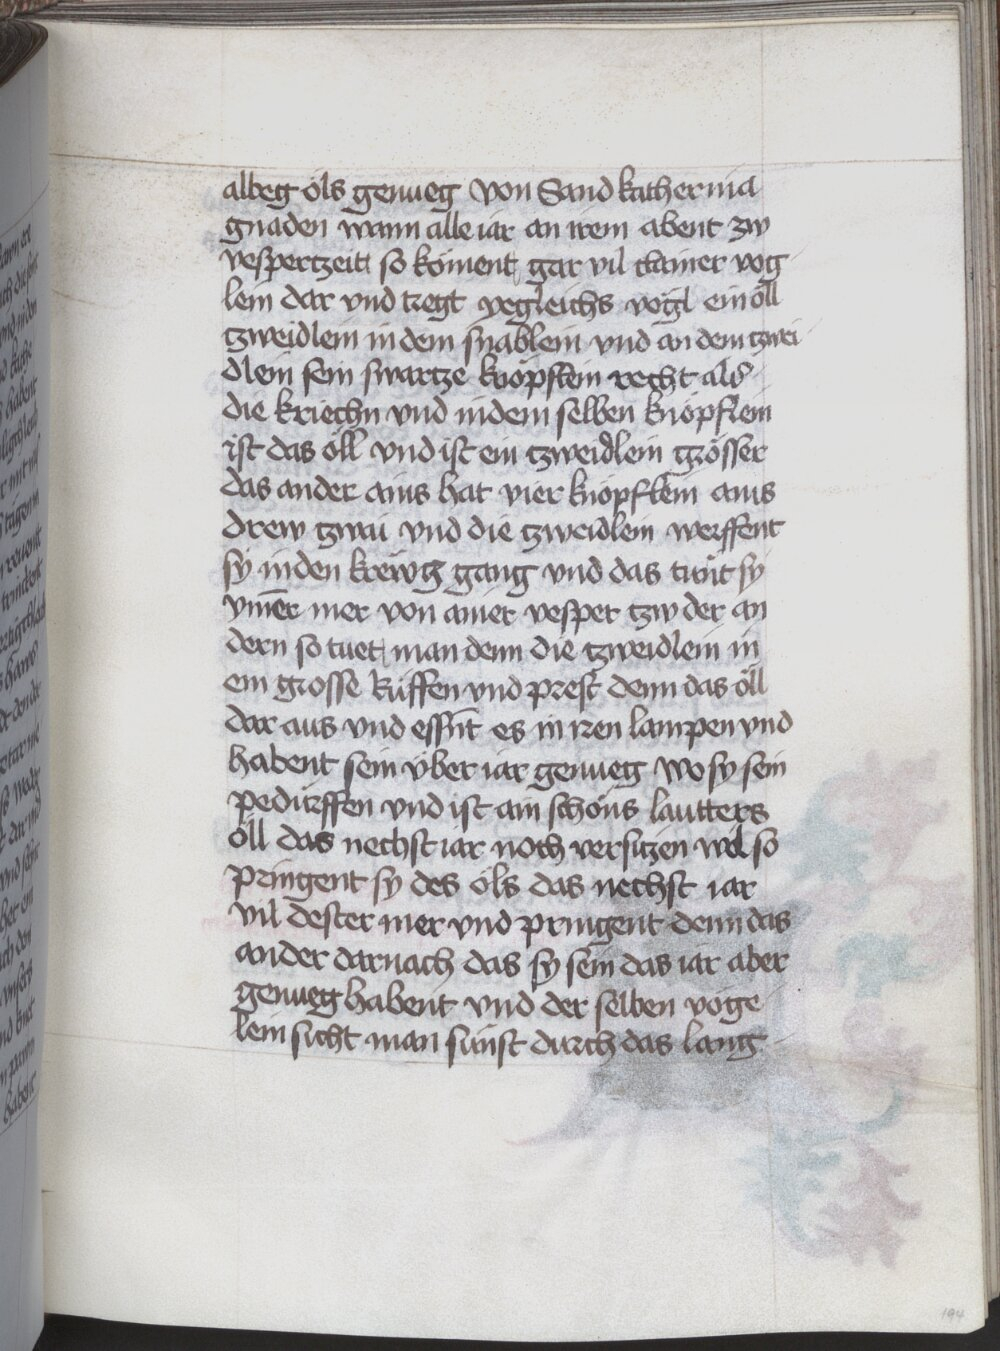 albeg öls genueg von Sand katherina
gnaden wann alle iar an irem abent zw
vespertzeitt so koment gar vil clainer vog
lein dar vnd tregt yegleichs vögl ein öll
tzweidlein in dem snäblein vnd an dem tzwei
dlein sein swartze knöpflein recht als
die kriechn vnd in dem selben knöpflein
ist das öll vnd ist ein tzweidlein grösser
das ander ains hat vier knöpflein ains
drew tzwai vnd die tzweidlein werffent
sy in den krewtz gang vnd das tunt sy
ymēr mer von ainer vesper tzw der an
dern so tuet man denn die tzweidlein in
ein grosse küffen vnd prest denn das öll
dar aus vnd essnt es in iren lampen vnd
habent sein vber iar genueg wo sy sein
pedürffen vnd ist ain schöns lautters
öll das nechst iar noch versitzen wel so
pringent sy des öls das nechst iar
vil dester mer vnd pringent denn das
ander darnach das sy sein das iar aber
genueg habent vnd der selben vöge
lein sicht man sünst durch das lang
194